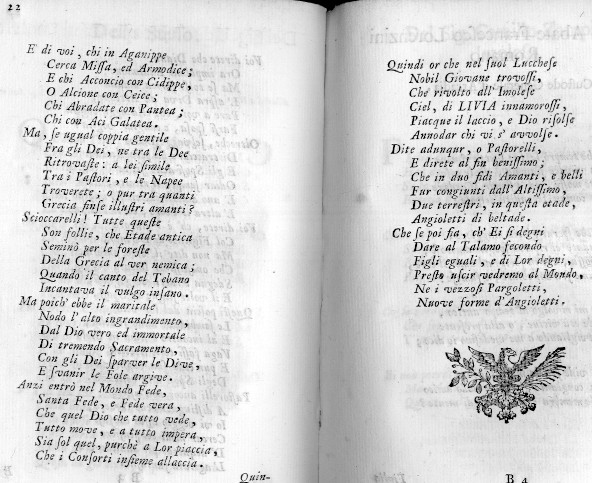 22
E' di voi, chi in Aganippe
Cerca Missa, ed Armodice;
E chi Acconcio con Cidippe,
O Alcione con Ceice;
Chi Abradate con Pantea;
Chi con Aci Galatea.
Ma, se ugual coppia gentile
Fra gli Dei, ne tra le Dee
Ritrovaste: a lei simile
Tra i Pastori, e le Napee
Troverete; o pur tra quanti
Grecia finse illustri amanti?
Scioccarelli! Tutte queste
Son follie, che Etade antica
Seminò per le foreste
Della Grecia al ver nemica;
Quando il canto del Tebano
Incantava il vulgo insano.
Ma poich' ebbe il maritale
Nodo l' alto ingrandimento,
Dal Dio vero ed immortale
Di tremendo Sacramento,
Con gli Dei sparver le Dive,
E svanir le Fole argive.
Anzi entrò nel Mondo Fede,
Santa Fede, e Fede vera,
Che quel Dio che tutto vede,
Tutto move, e a tutto impera,
Sia sol quel, purchè a Lor piaccia,
Che i Consorti insieme allaccia.
Quin-
Quindi or che nel suol Lucchese
Nobil Giovane trovossi,
Che rivolto all' Imolese
Ciel, di LIVIA innamorossi,
Piacque il laccio, e Dio risolse
Annodar chi vi s' avvolse.
Dite adunqur, o Pastorelli,
E direte al fin benissimo;
Che in duo fidi Amanti, e belli
Fur congiunti dall' Altissimo,
Due terrestri, in questa etade,
Angioletti di beltade.
Che se poi fia, ch' Ei si degni
Dare al Talamo fecondo
Figli eguali, e di Lor degni,
Presto uscir vedremo al Mondo,
Ne i vezzosi Pargoletti,
Nuove forme d' Angioletti.
B 4